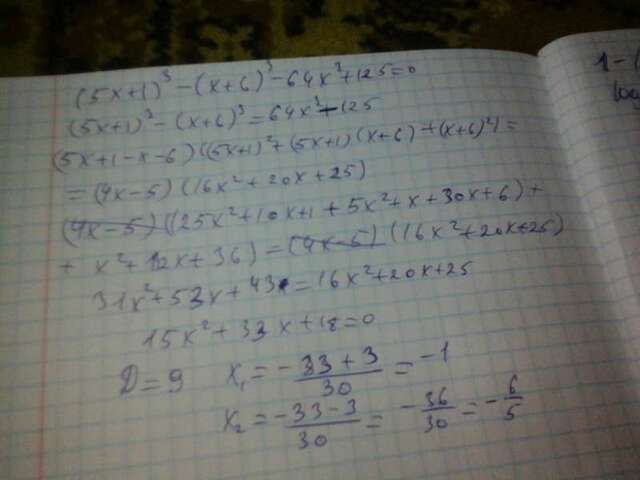 (5x+1)³-(x+6)³-64x³+125=0
(5x+1)³-(x+6)³=64x³-125
(5x+1-x-6)((5x+1)²+(5x+1)(x+6)+(x+6)²)=
=(4x-5)(16x²+20x+25)
(4x-5)((25x²+10x+1+5x²+x+30x+6)+
+x²+12x+36)=(4x-5)(16x²+20x+25)
31x²+53x+43=16x²+20x+25
15x²+33x+18=0
D=9 x₁=-33+3/30=-1
x₂=-33-3/30=-36/30=-6/5
1-(